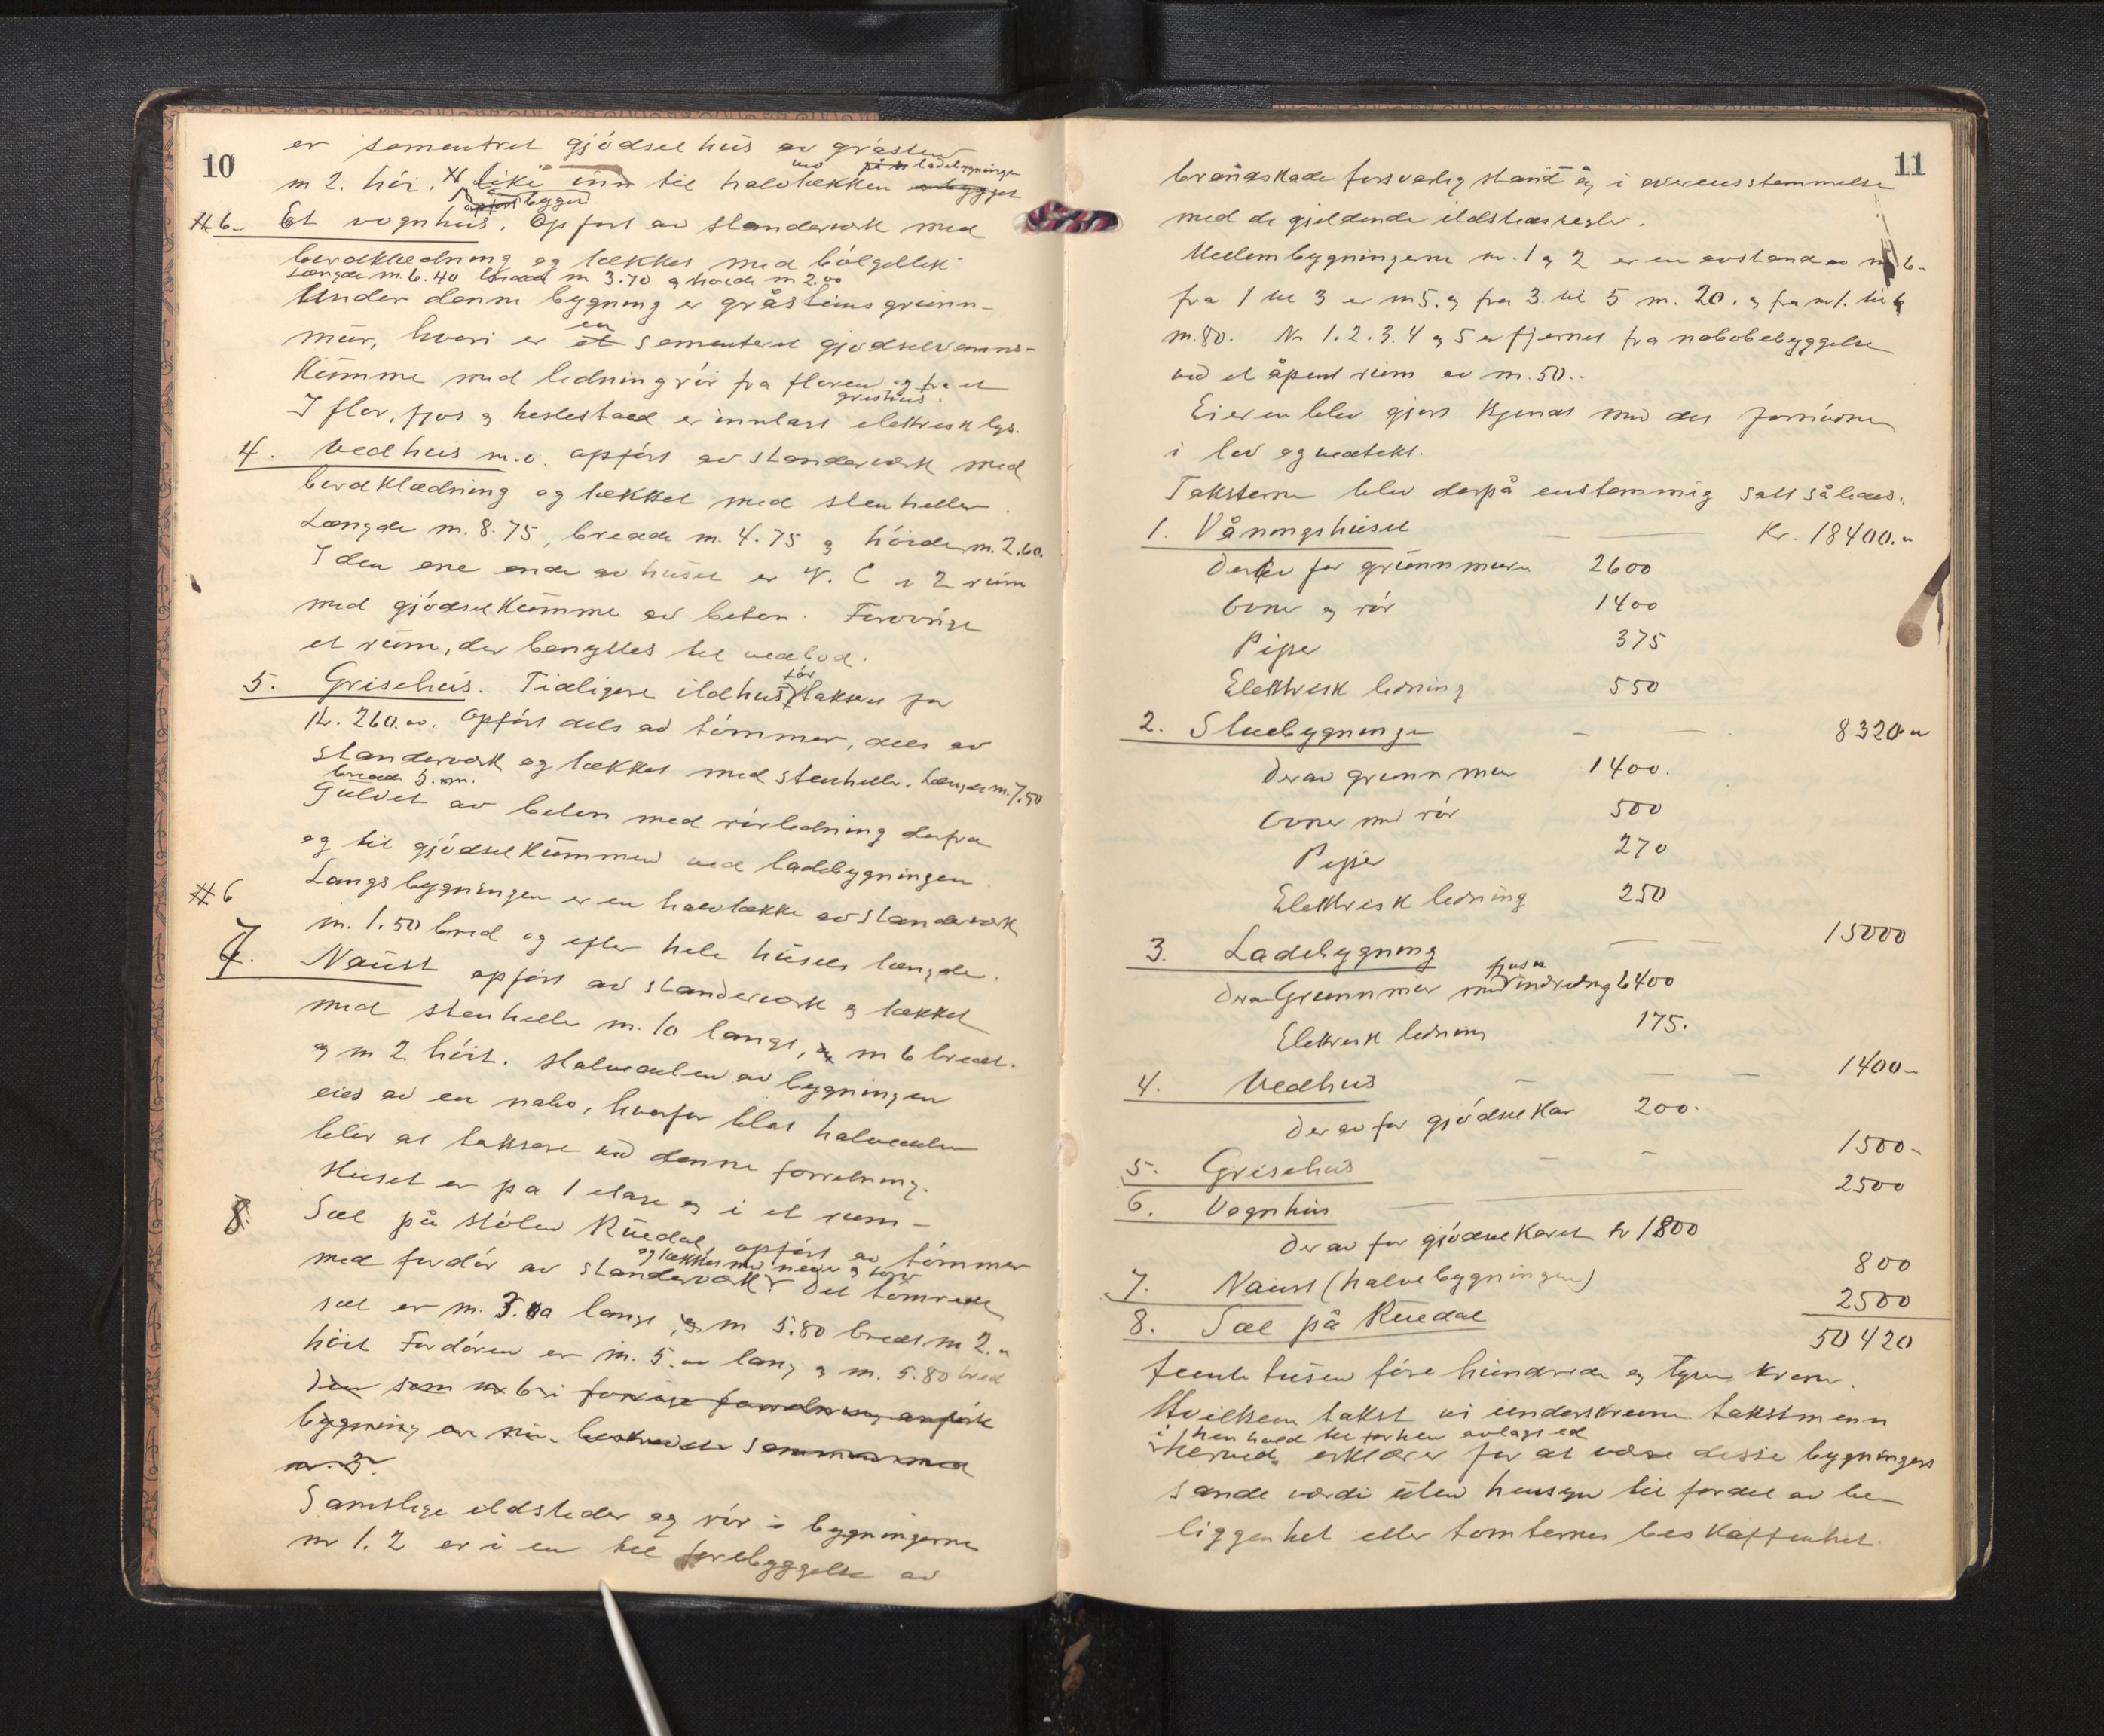 10
er sementret gjödselhus av gråsten
m 2. höi. # like inn til halvtækken ved ladebygningen
opfört bygget
# 6- Et vognhus. Opfört av standerværk med
bordklædning og tækket med bölgeblik
Længde m. 6.40 bredde m 3.70 og höide m 2.00
Under denne bygning er gråstens grunn-
mur, hvori er en sementeret gjödselvanns-
kumme med ledningrör fra floren og fra et
grishus.
I flor, fjos og hestestald er innlagt elektrisk lys.
4. Vedhus m.v. opfört av standerværk med
bordklædning og tækket med stenheller.
Længde m. 8.75, bredde m. 4.75 og höide m. 2.60.
I den ene ende av huset er V. C i 2 rum
med gjödselkumme av beton. Forövrigt
et rum, der benyttes til vedbod.
5. Grisehus. Tidligere ildhus för takseret for
kr. 260.00. Opfört dels av tömmer, dels av
standerværk og tækket med stenheller. Længde m. 7.50
bredde 5. m.
Gulvet av beton med rörledning derfra
og til gjödselkummen ved ladebygningen.
# 6 Langs bygningen er en halvtække av standerværk
m. 1.50 bred og efter hele husets længde.
7. Naust opfört av standerværk og tækket
med stenheller m. 10 langt, m 6 bredt.
og m 2. höit. Halvedelen av bygningen
eies av en nabo, hvorfor blot halvedelen
blir at taksere ved denne forretning.
Huset er på 1 etage og i et rum-
8. Sæl på stölen Ruedal, opfört av tömmer
med fordör av standerværk og tækket med never og torv. Det tömrede
sæl er m. langt, m 5.80 bredt m 2.
höit Fordören er m. 5. lang og m. 5.80 bred
Den som nr 6 i forrige forretning anförte
bygning er nu beskrevet sammen med
nr. 3.
Samtlige ildsteder og rör i bygningerne
nr 1. 2 er i en til forebyggelse av
11
brandskade forsvarlig stand og i overensstemmelse
med de gjeldende ildstedsregler.
Mellem bygningerne nr. 1 og 2 er en avstand av m 6-
fra 1 til 3 er m 5. og fra 3. til 5 m. 20. og fra nr 1. til 4
m. 80. Nr 1. 2. 3. 4 og 5 er fjernet fra nabobebyggelse
ved et åpent rum av m. 50..
Eieren blev gjort kjendt med det fornödne
i lov og vedtekt.
Taksterne blev derpå enstemmig satt således:
1. Våningshuset — — Kr. 18400.-
Derav for grunnmuren 2600
Ovner og rör 1400
Piper 375
Elektrisk ledning 550
2. Stuebygninge — — 8320-
Derav grunnmur 1400.
Ovner med rör 500
Piper 270
Elektrisk ledning 250
3. Ladebygning — — 15000
Derav Grunnmur med fjös innredning 6400
Elektrisk ledning 175.
4. Vedhus — — — 1400-
Derav for gjödselkar 200.
5. Grisehus — — 1500-
6. Vognhus — 2500
Derav for gjödselkaret kr 1800
7. Naust (halve bygningen) 800
8. Sæl på Ruedal 2500
50420
femti tusen fire hundrede og tyve kroner.
Hvilken takst vi underskrevne takstmenn
i henhold til forhen avlagt ed
herved erklærer for at være disse bygningers
sande værdi uten hensyn til fordel av be-
liggenhet eller tomternes beskaffenhet.